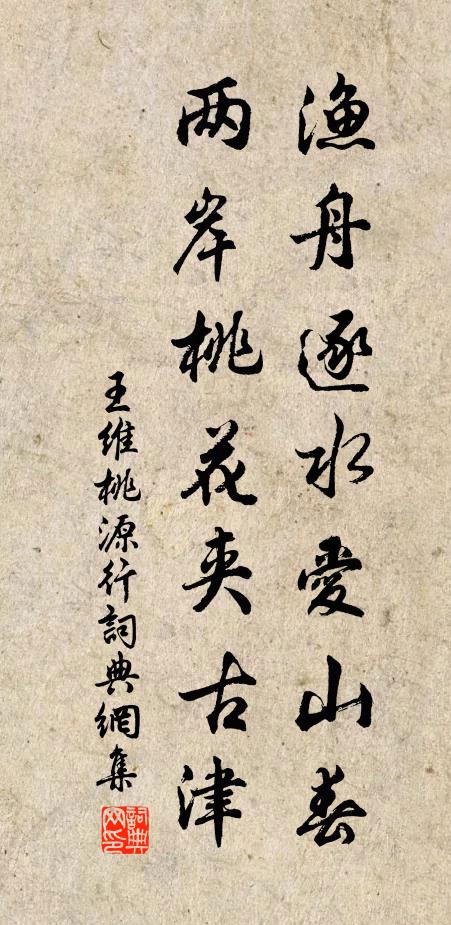 渔舟逐水愛山春
两岸桃花夹古津
王維桃源行詞典網集
詞典网印